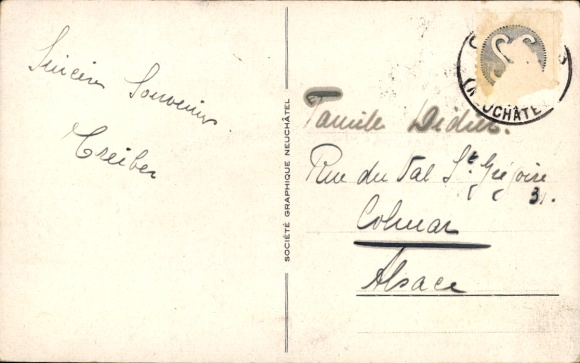 Sincère Souvenir
Treiber
SOCIÉTÉ GRAPHIQUE NEUCHÂTEL
(NEUCHÂTEL
Famille Didier.
Rue du Val St Grégoire
31.
Colmar
Alsace